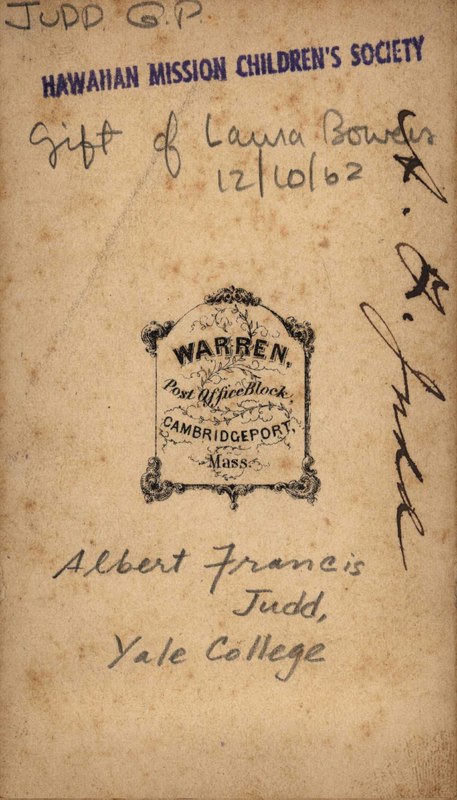 JUDD G.P
HAWAIIAN MISSION CHILDREN'S SOCIETY
Gift of Laura Bowers
12/10/62
A. F. Judd
WARREN,
Post Office Block,
CAMBRIDGEPORT,
Mass.
Albert Francis
Judd,
Yale College